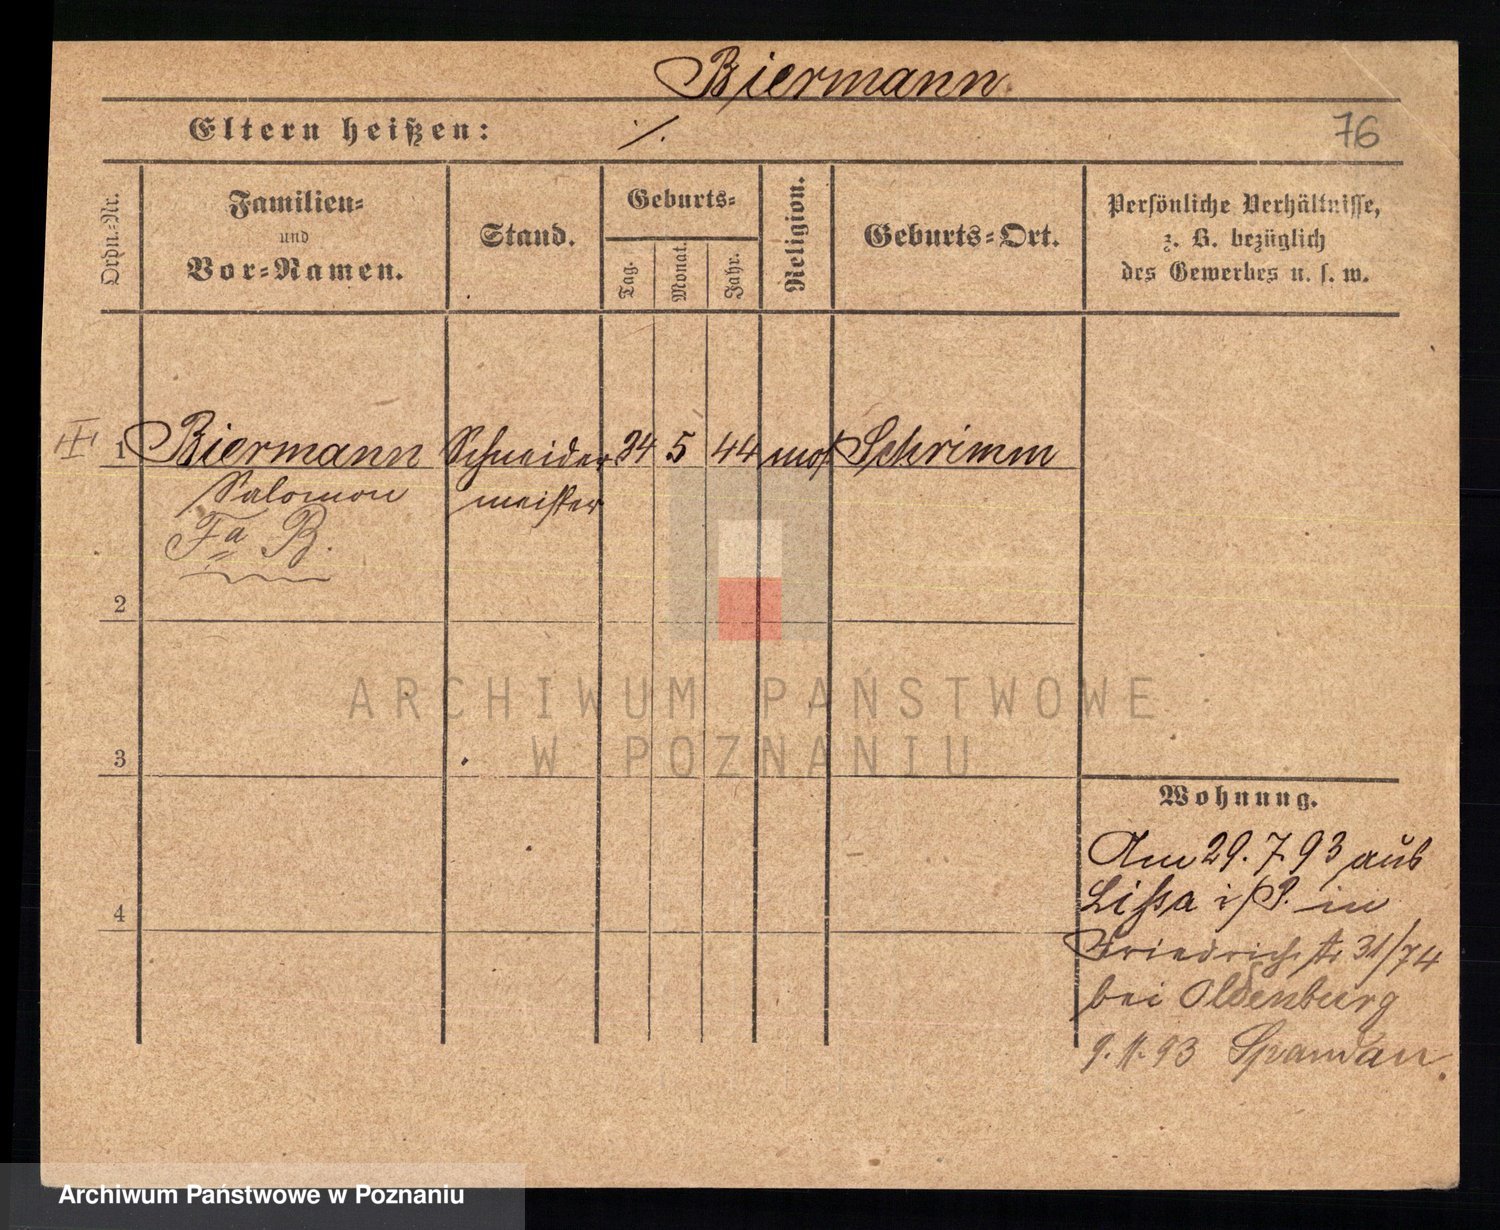 Biermann
Eltern heißen: ./.
76
Ordn.-Nr.
Familien-
und
Vor-Namen.
Stand.
Geburts-
Tag.
Monat.
Jahr.
Religion.
Geburts-Ort.
Persönliche Verhältnisse,
z. B. bezüglich
des Gewerbes u. s. w.
III 1 Biermann Schneider 24 5 44 mos. Schrimm
Salomon meister
Fa B.
2
3
4
Wohnung.
Am 29.7.93 aus
Lissa i/P. in
Friedrichstr 31/74
bei Oldenburg
9.11.93 Spandau.
ARCHIWUM PAŃSTWOWE
W POZNANIU
Archiwum Państwowe w Poznaniu